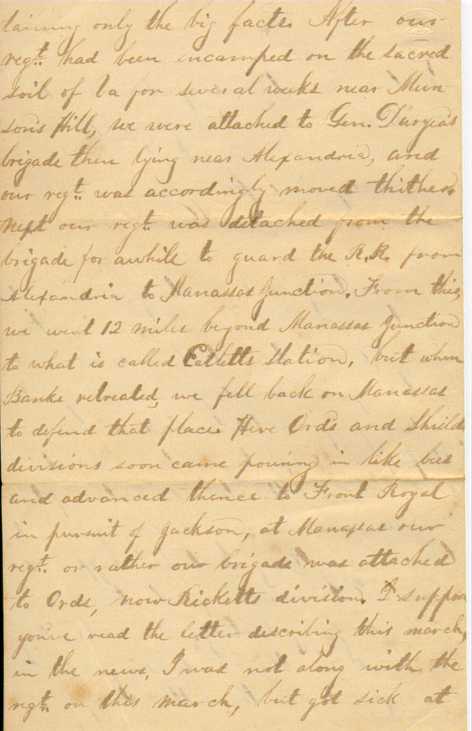 taining only the big facts. After our
regt. had been encamped on the sacred
soil of Va for several weeks near Mun
sons Hill, we were attached to Gen. Duryeas
brigade then lying near Alexandria, and
our regt. was accordingly moved thither.
Next our regt. was detached from the
brigade for awhile to guard the R.R. from
Alexandria to Manassas Junction. From this,
we went 12 miles beyond Manassas Junction
to what is called Catletts Station, but when
Banks retreated, we fell back on Manassas
to defend that place. Here Ords and Shields
divisions soon came pouring in like bees
and advanced thence to Front Royal
in pursuit of Jackson, at Manassas our
regt. or rather our brigade was attached
to Ords, now Ricketts division. I suppose
you've read the letter describing this march,
in the news, I was not along with the
regt. on this march, but got sick at